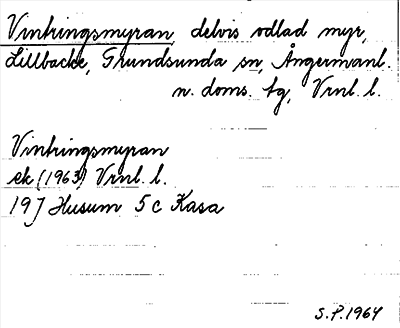 Vintringsmyran, delvis odlad myr,
Lillbacke, Grundsunda sn, Ångermanl.
n. doms. tg, Vrnl. l.
Vintringsmyran
ek (1963) Vrnl. l.
19 J Husum 5 c Kasa
S.P. 1964